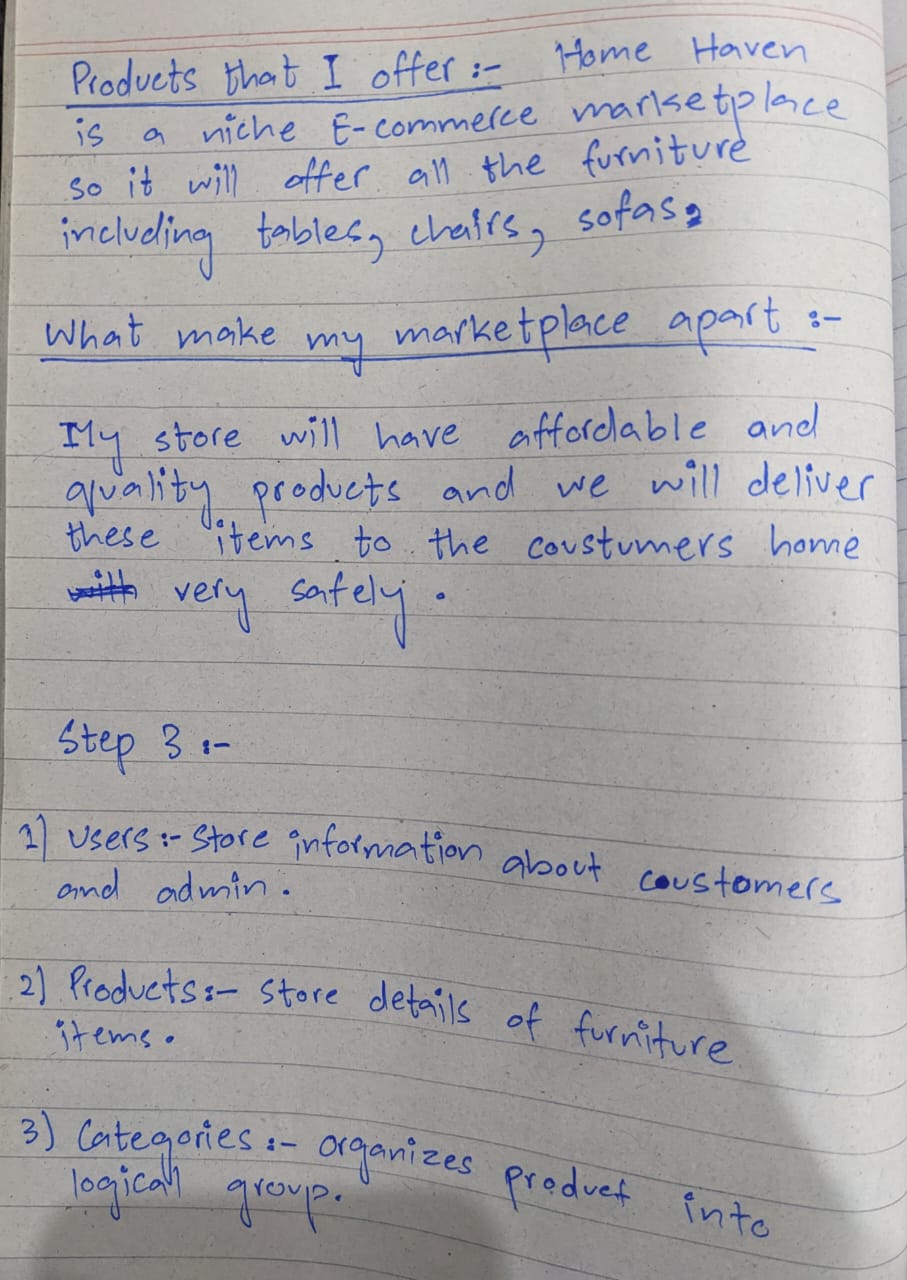 Products that I offer :- Home Haven
is a niche E-commerce marketplace
so it will offer all the furniture
including tables, chairs, sofas,
What make my marketplace apart :-
My store will have affordable and
quality products and we will deliver
these items to the coustumers home
with very safely.
Step 3 :-
1) Users :- Store information about coustomers
and admin.
2) Products :- Store details of furniture
items.
3) Categories :- Organizes product into
logical group.